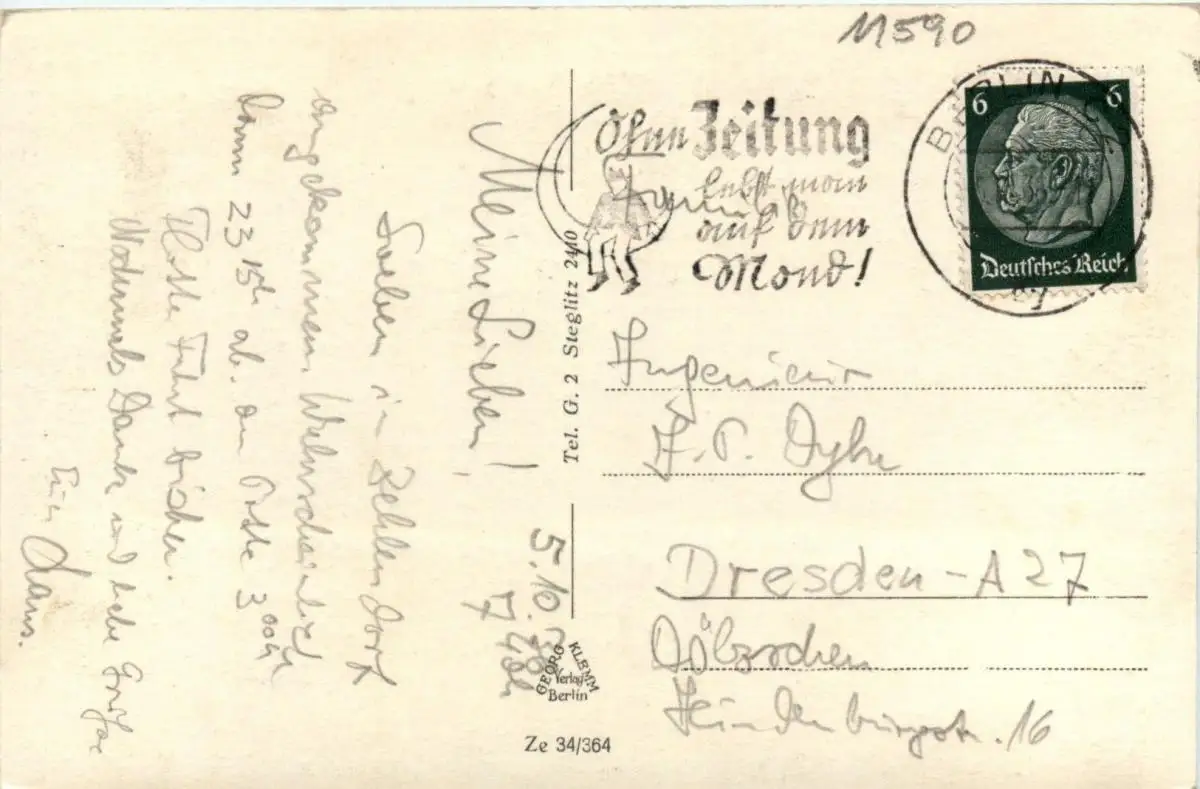 11590
Ohne Zeitung
lebt man
auf dem
Mond!
BERLIN
6 6
Deutsches Reich
Meine Lieben!
5.10.38
7 40h
Soeben in Zehlendorf
angekommen. Wahrscheinlich
dann 23 15h ab. an 3 00h
Flotte Fahrt bisher.
Nochmals Dank und liebe Grüße
Euer Hans.
Tel. G. 2 Steglitz 2410
GEORG KLEMM
Verlag
Berlin
Ze 34/364
Ingenieur
Dresden-A 27
Dölzschen
Hindenburgstr. 16